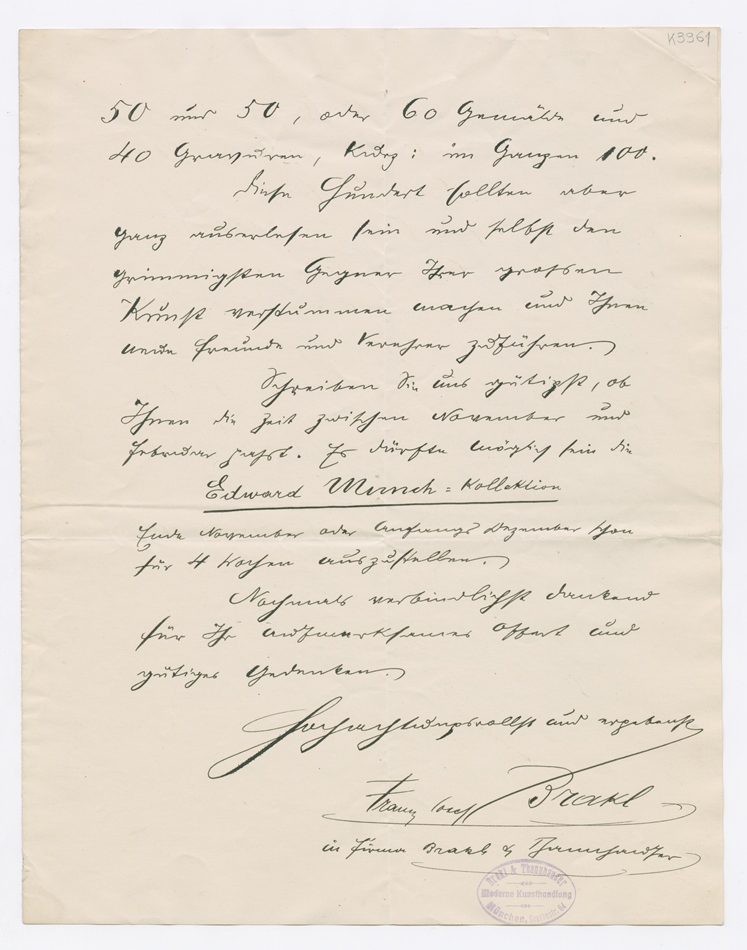 K3961
50 und 50, oder 60 Gemälde und
40 Gravuren, Kurz: im Ganzen 100.
Diese Hundert sollten aber
ganz auserlesen sein und selbst den
grimmigsten Gegner Ihrer grossen
Kunst verstummen machen und Ihnen
neue Freunde und Verehrer zuführen.
Schreiben Sie uns gütigst, ob
Ihnen die Zeit zwischen November und
Februar passt. Es dürfte möglich sein die
Edward Munch = Kollektion
Ende November oder Anfangs Dezember schon
für 4 Wochen auszustellen.
Nochmals verbindlichst dankend
für Ihr aufmerksames Offert und
gütiges Gedenken.
Hochachtungsvollst und ergebenst
Franz Josef Brakl
in Firma Brakl & Thannhauser
Brakl & Thannhauser
Moderne Kunsthandlung
München,